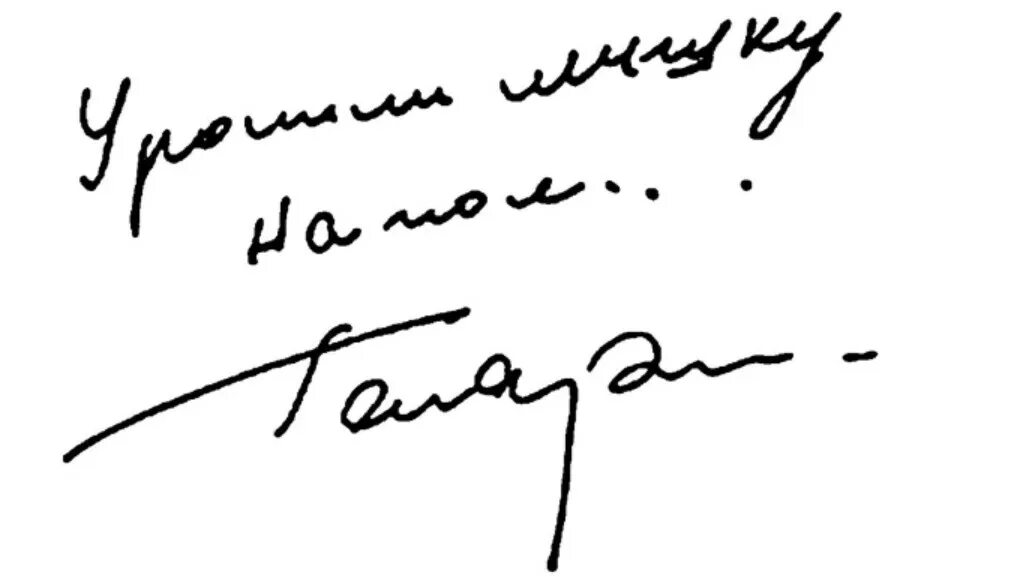 Уронили мишку
на пол...